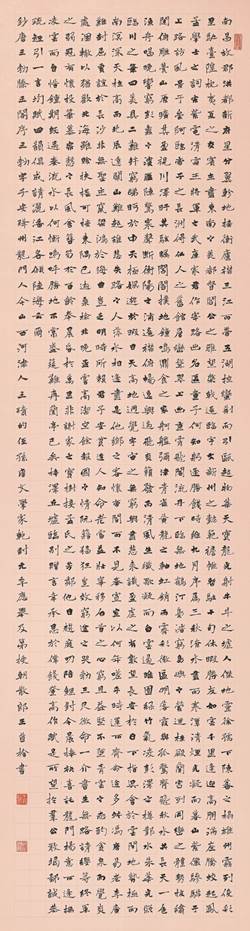 南昌故郡洪都新府星分翼軫地接衡廬襟三江而帶五湖控蠻荊而引甌越物華天寶龍光射牛斗之墟人傑地靈徐孺下陳蕃之榻雄州霧列俊彩
星馳臺隍枕夷夏之交賓主盡東南之美都督閻公之雅望棨戟遙臨宇文新州之懿範襜帷暫駐十旬休暇勝友如雲千里逢迎高朋滿座騰蛟起鳳
孟學士之詞宗紫電青霜王將軍之武庫家君作宰路出名區童子何知躬逢勝餞時維九月序屬三秋潦水盡而寒潭清煙光凝而暮山紫儼驂騑於
上路訪風景於崇阿臨帝子之長洲得仙人之舊館層巒聳翠上出重霄飛閣流丹下臨無地鶴汀鳧渚窮島嶼之縈迴桂殿蘭宮列岡巒之體勢披繡闥俯
雕甍山原曠其盈視川澤紆其駭矚閭閻撲地鐘鳴鼎食之家舸艦迷津青雀黃龍之軸雲銷雨霽彩徹區明落霞與孤鶩齊飛秋水共長天一色
漁舟唱晚響窮彭蠡之濱雁陣驚寒聲斷衡陽之浦遙襟俯暢逸興遄飛爽籟發而清風生纖歌凝而白雲遏睢園綠竹氣凌彭澤之樽鄴水朱華光照
臨川之筆四美具二難并窮睇眄於中天極娛遊於暇日天高地迥覺宇宙之無窮興盡悲來識盈虛之有數望長安於日下指吳會於雲間地勢極而
南溟深天柱高而北辰遠關山難越誰悲失路之人萍水相逢盡是他鄉之客懷帝閽而不見奉宣室以何年嗚呼時運不齊命途多舛馮唐易老李廣
難封屈賈誼於長沙非無聖主竄梁鴻於海曲豈乏明時所賴君子安貧達人知命老當益壯寧知白首之心窮且益堅不墜青雲之志酌貪泉而覺爽處
涸轍以猶歡北海雖賒扶搖可接東隅已逝桑榆非晚孟嘗高潔空懷報國之情阮籍猖狂豈效窮途之哭勃三尺微命一介書生無路請纓等終軍
之弱冠有懷投筆慕宗慤之長風捨簪笏於百齡奉晨昏於萬里非謝家之寶樹接孟氏之芳鄰他日趨庭叨陪鯉對今晨捧袂喜托龍門楊意不逢撫
凌雲而自惜鍾期既遇奏流水以何慚嗚呼勝地不常盛筵難再蘭亭已矣梓澤丘墟臨別贈言幸承恩於偉餞登高作賦是所望於群公敢竭鄙誠恭
疏短引一言均賦四韻俱成請灑潘江各傾陸海云爾
鈔唐王勃滕王閣序王勃字子安絳州龍門人今山西河津人王績的侄孫